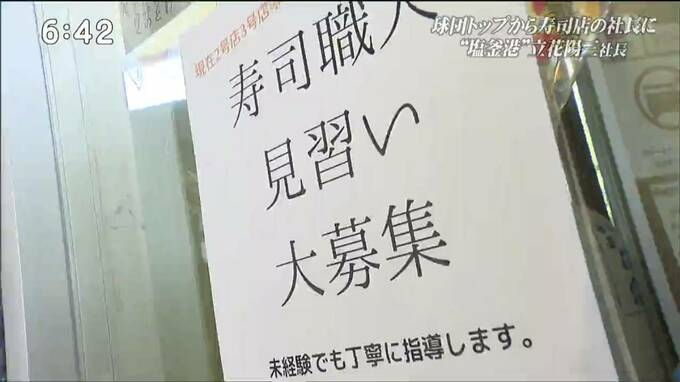 6:42
球団トップから寿司店の社長に
“塩釜港”立花陽三社長
現在2号店3号店
寿司職人
見習い
大募集
未経験でも丁寧に指導します。